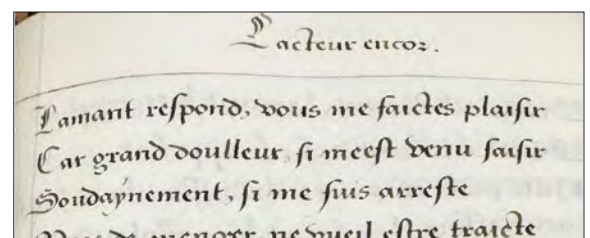 Lacteur encor.
Lamant respond, vous me faictes plaisir
Car grand doulleur, si meest venu saisir
Soudaynement, si me suis arreste
de menger, ne vueil estre traicte